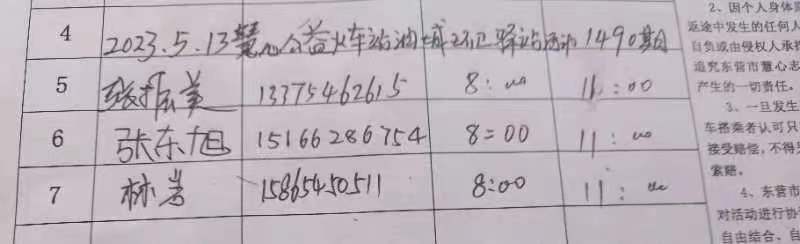 4 2023.5.13慧心公益火车站油城环卫驿站活动1490期
5 张振美 13375462615 8:00 11:00
6 张东旭 15166286754 8=00 11:00
7 林岩 15865450511 8:00 11:00
2、因个人身体
返途中发生的任何人
自负或由侵权人承担
追究东营市慧心志
产生的一切责任。
3、一旦发生
车搭乘者认可只
接受赔偿,不得
索赔。
4、东营市
对活动进行协
自由结合、自